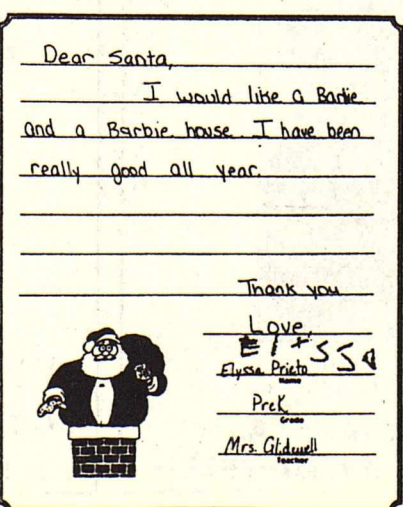 Dear Santa,
I would like a Barbie
and a Barbie house. I have been
really good all year.
Thank you
Love,
Elyssa Prieto
Name
PreK
Grade
Mrs. Glidwell
Teacher